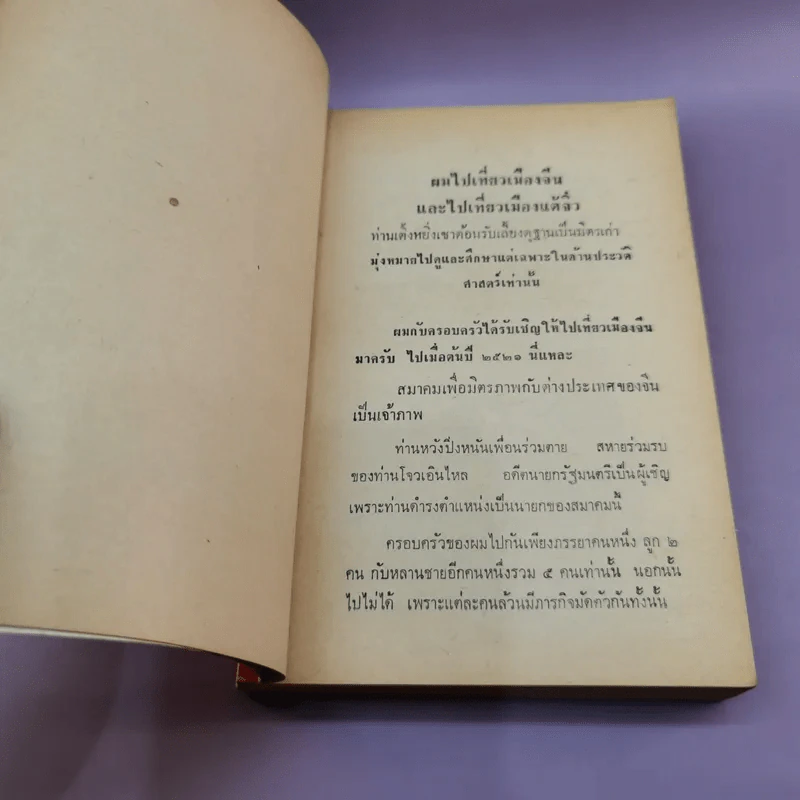 ผมไปเที่ยวเมืองจีน
และไปเที่ยวเมืองแต้จิ๋ว
ท่านเต็งหยิ่งเชาต้อนรับเลี้ยงดูฐานเป็นมิตรเก่า
มุ่งหมายไปดูและศึกษาแต่เฉพาะในด้านประวัติ
ศาสตร์เท่านั้น
ผมกับครอบครัวได้รับเชิญให้ไปเที่ยวเมืองจีน
มาครับ ไปเมื่อต้นปี ๒๕๒๑ นี่แหละ
สมาคมเพื่อมิตรภาพกับต่างประเทศของจีน
เป็นเจ้าภาพ
ท่านหวังปิ่งหนันเพื่อนร่วมตาย สหายร่วมรบ
ของท่านโจวเอินไหล อดีตนายกรัฐมนตรีเป็นผู้เชิญ
เพราะท่านดำรงตำแหน่งเป็นนายกของสมาคมนี้
ครอบครัวของผมไปกันเพียงภรรยาคนหนึ่ง ลูก ๒
คน กับหลานชายอีกคนหนึ่งรวม ๕ คนเท่านั้น นอกนั้น
ไปไม่ได้ เพราะแต่ละคนล้วนมีภารกิจมัดตัวกันทั้งนั้น